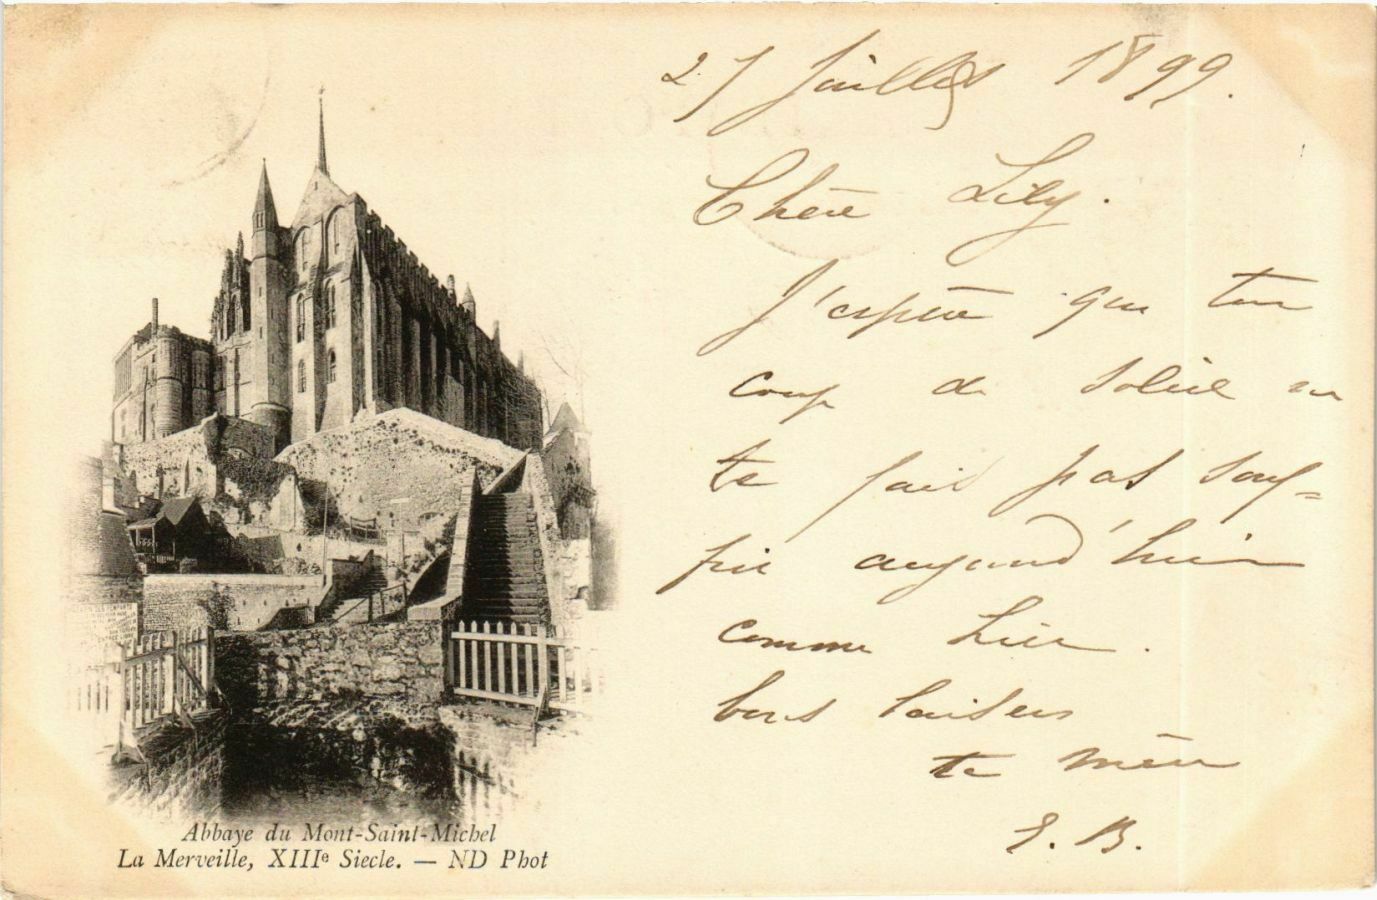 27 juillet 1899.
Chère Lily.
J'espère que ton
coup de soleil ne
te fait pas souf=
frir aujourd'hui
comme hier.
bons baisers
ta mère
J. B.
Abbaye du Mont-Saint-Michel
La Merveille, XIIIe Siecle. — ND Phot